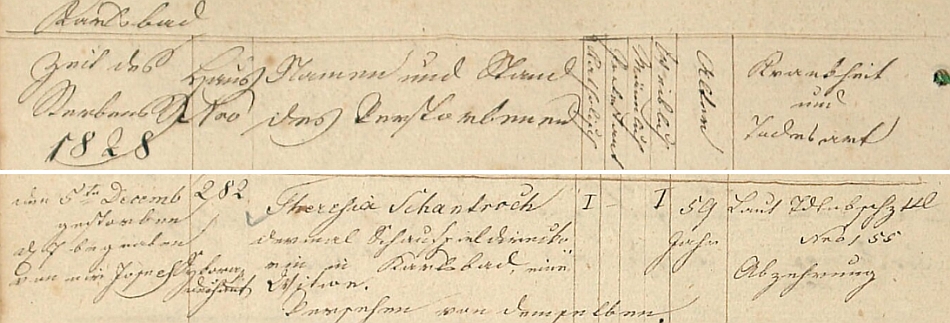 Karlsbad
Zeit des Sterbens 1828
Haus Nro
Namen und Stand des Verstorbenen
Katholisch
Protestant
Männlich
Weiblich
Alter
Krankheit und Todesart
den 5ten Decemb gestorben
d 7 begraben
von mir Joseph
282
Theresia Schantroch
dermal Schauspieldirecto
rin in Karlsbad, eine
Witwe.
Versehen von demselben.
I - I
59 Jahr
Laut Tdtbschzttl
Nro 155
Abzehrung